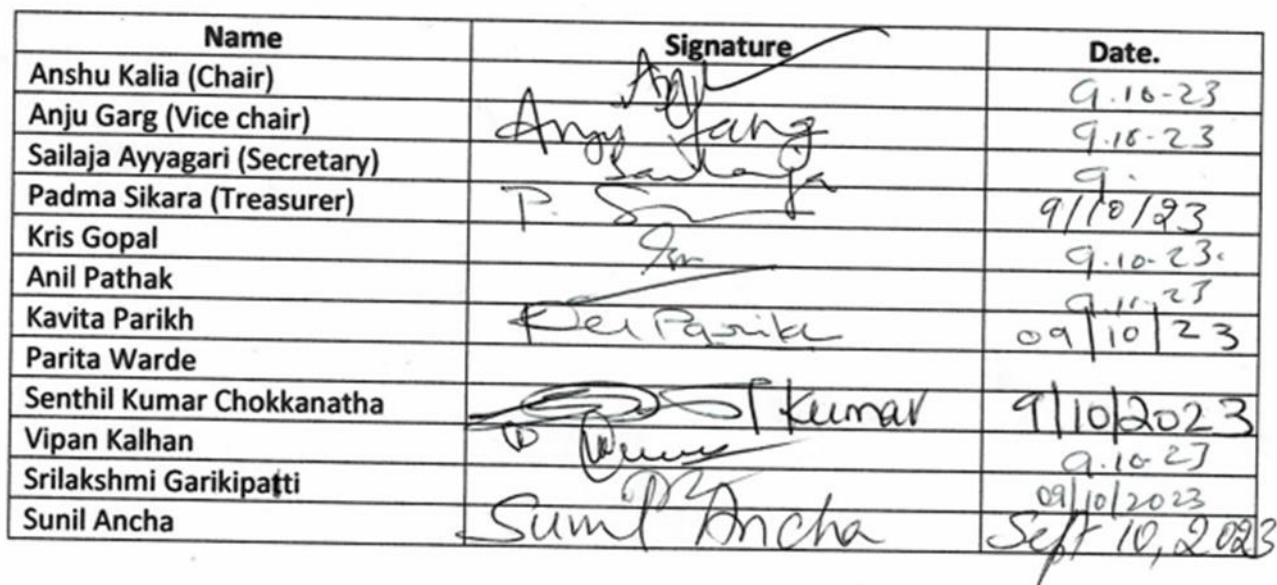 Name Signature Date.
Anshu Kalia (Chair) 9.10-23
Anju Garg (Vice chair) Anju Garg 9.10-23
Sailaja Ayyagari (Secretary) Sailaja 9.
Padma Sikara (Treasurer) P. 9/10/23
Kris Gopal 9.10-23.
Anil Pathak 23
Kavita Parikh Parikh 09/10/23
Parita Warde
Senthil Kumar Chokkanatha Kumar 9/10/2023
Vipan Kalhan 9.10-23
Srilakshmi Garikipatti 09/10/2023
Sunil Ancha Sunil Ancha Sept 10, 2023